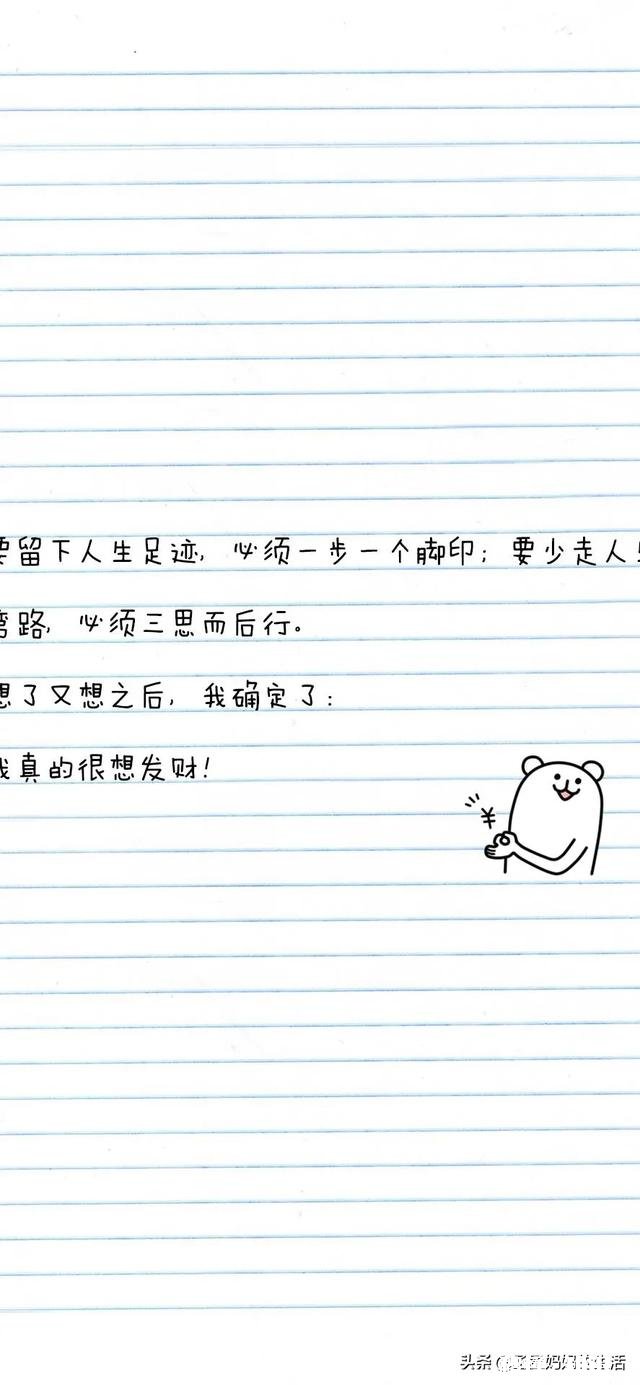 要留下人生足迹，必须一步一个脚印；要少走人生
弯路，必须三思而后行。
想了又想之后，我确定了：
我真的很想发财！
¥
头条
妈妈
生活